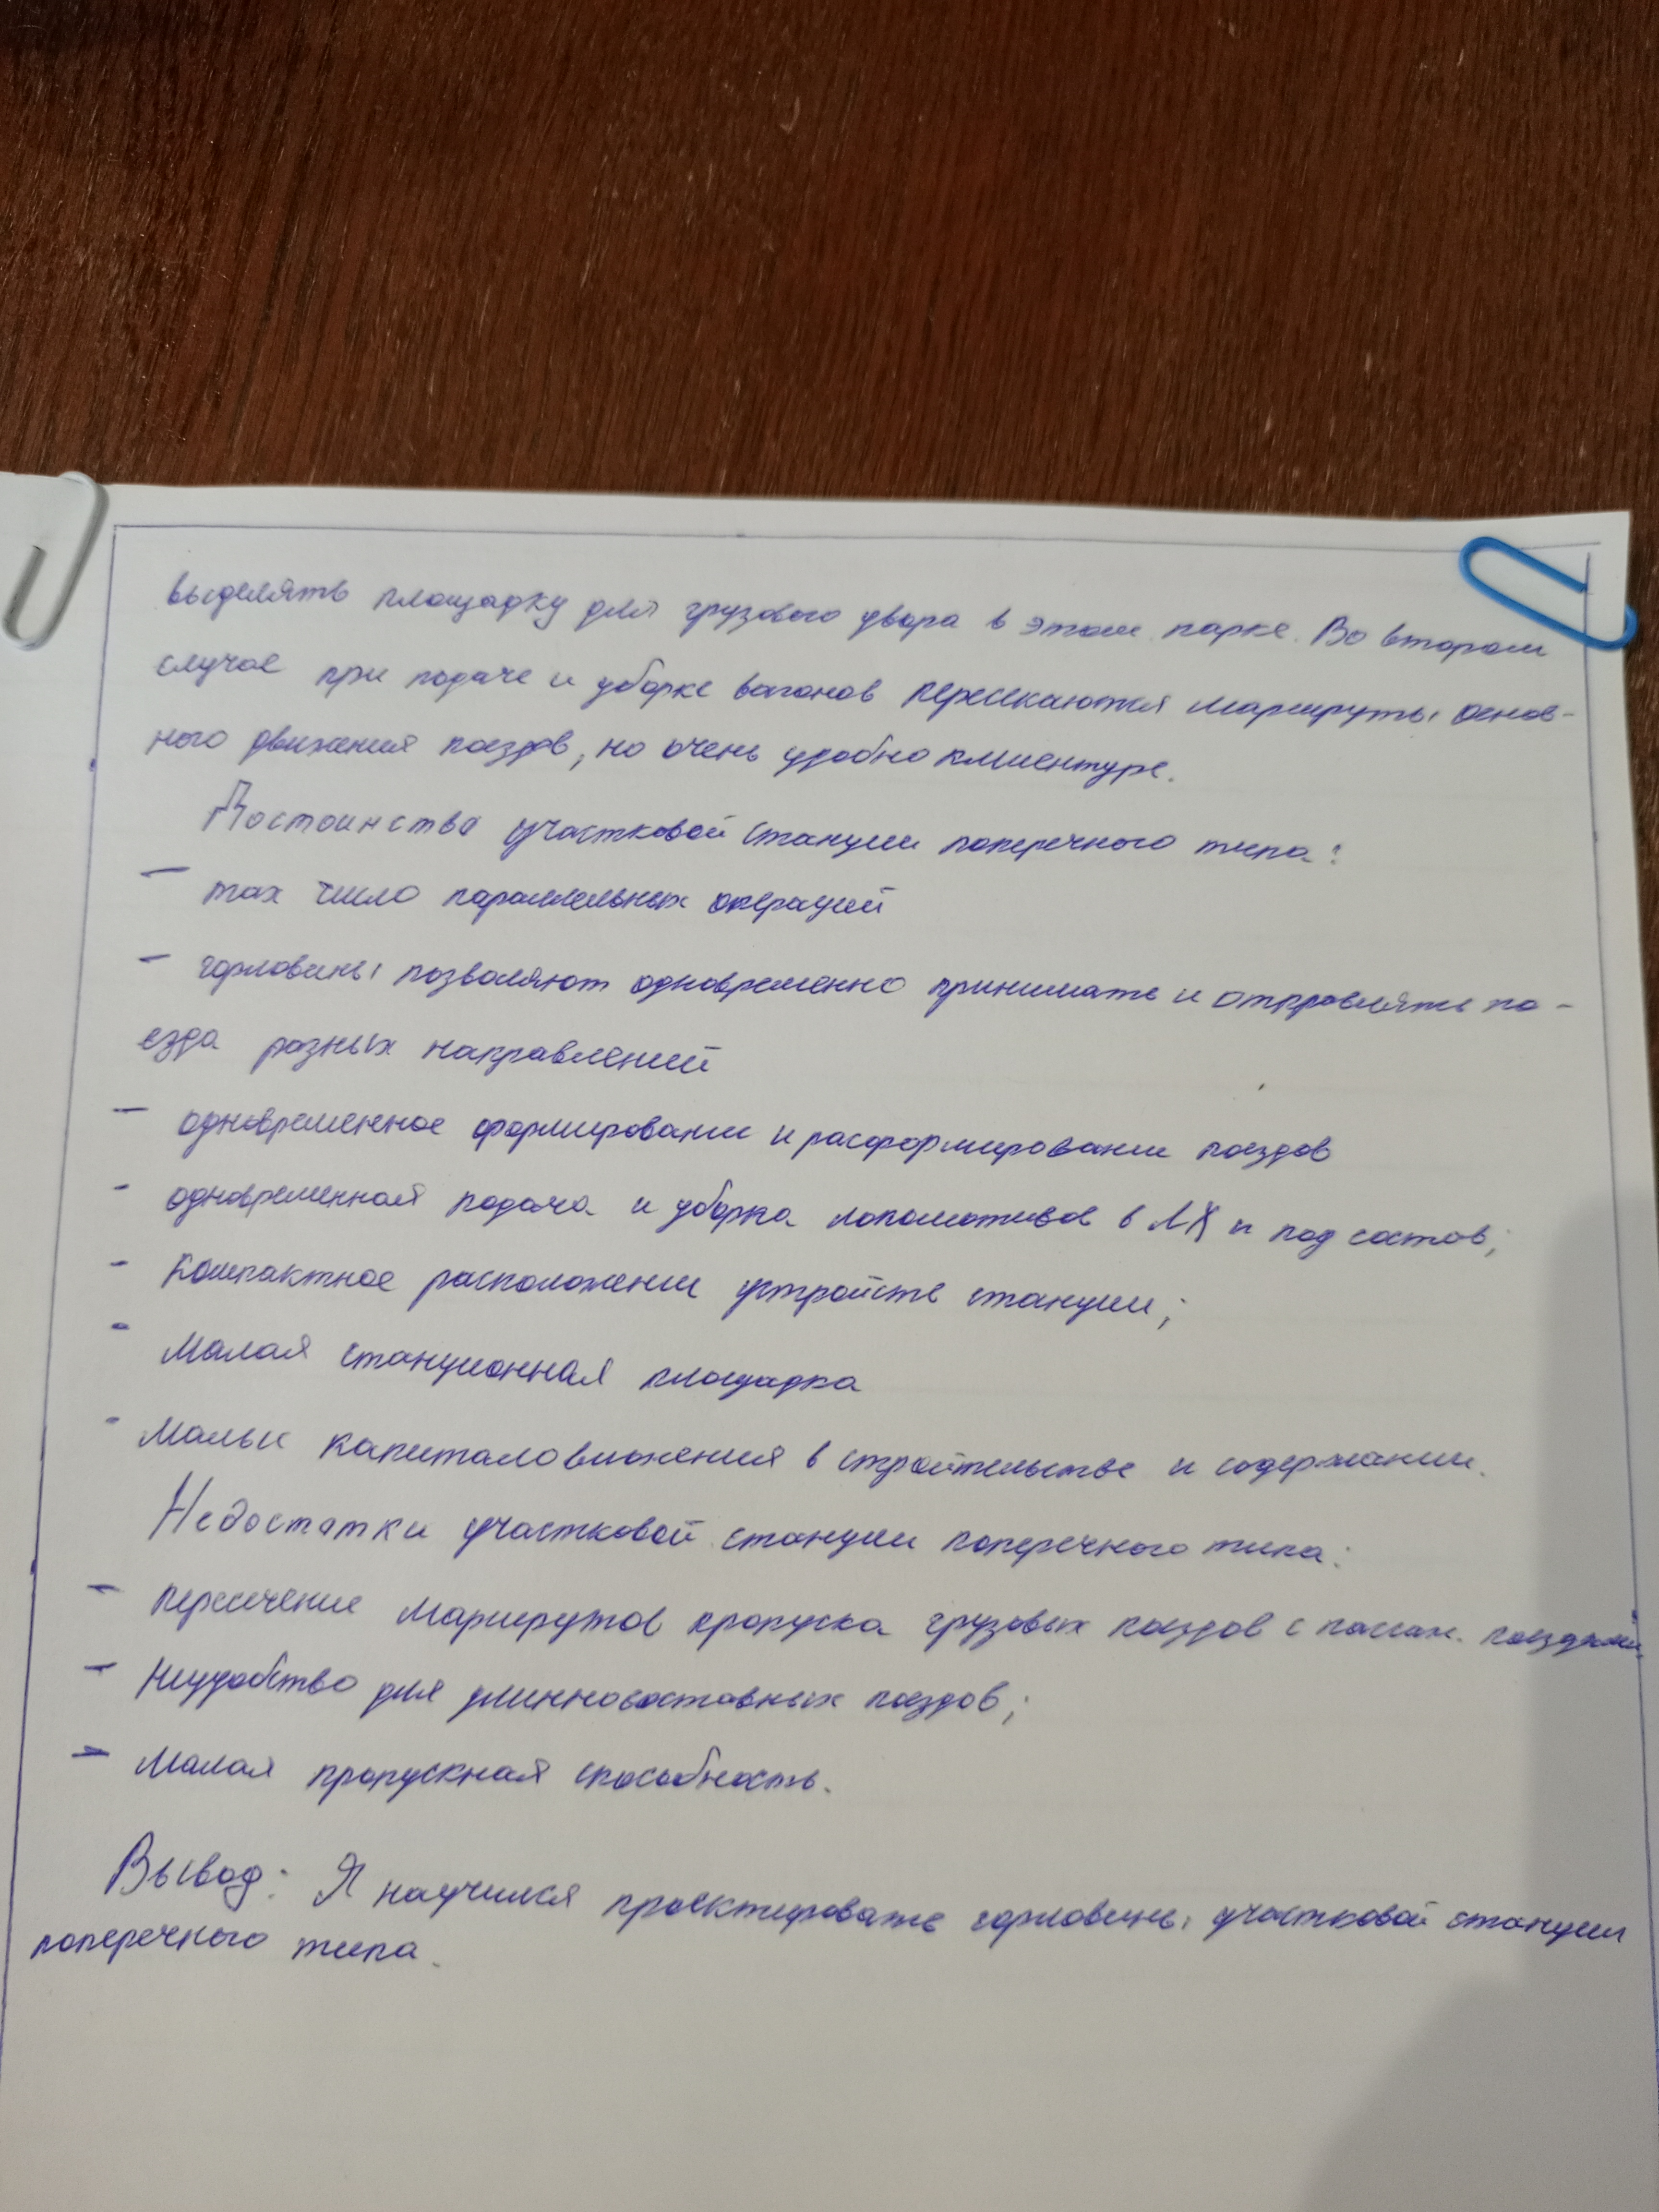 выделять площадку для грузового двора в этом парке. Во втором
случае при подаче и уборке вагонов пересекаются маршруты основ-
ного движения поездов, но очень удобно клиентуре.
Достоинства участковой станции поперечного типа:
— max число параллельных операций
— горловины позволяют одновременно принимать и отправлять по-
езда разных направлений
— одновременное формировании и расформировании поездов
- одновременная подача и уборка локомотивов в ЛХ и под состов;
- компактное расположении устройств станции;
- малая станционная площадка
- малые капиталовложения в строительстве и содержании.
Недостатки участковой станции поперечного типа:
— пересечение маршрутов пропуска грузовых поездов с пассаж. поездами.
— неудобство для длинносоставных поездов;
— малая пропускная способность.
Вывод: Я научился проектировать горловины участковой станции
поперечного типа.